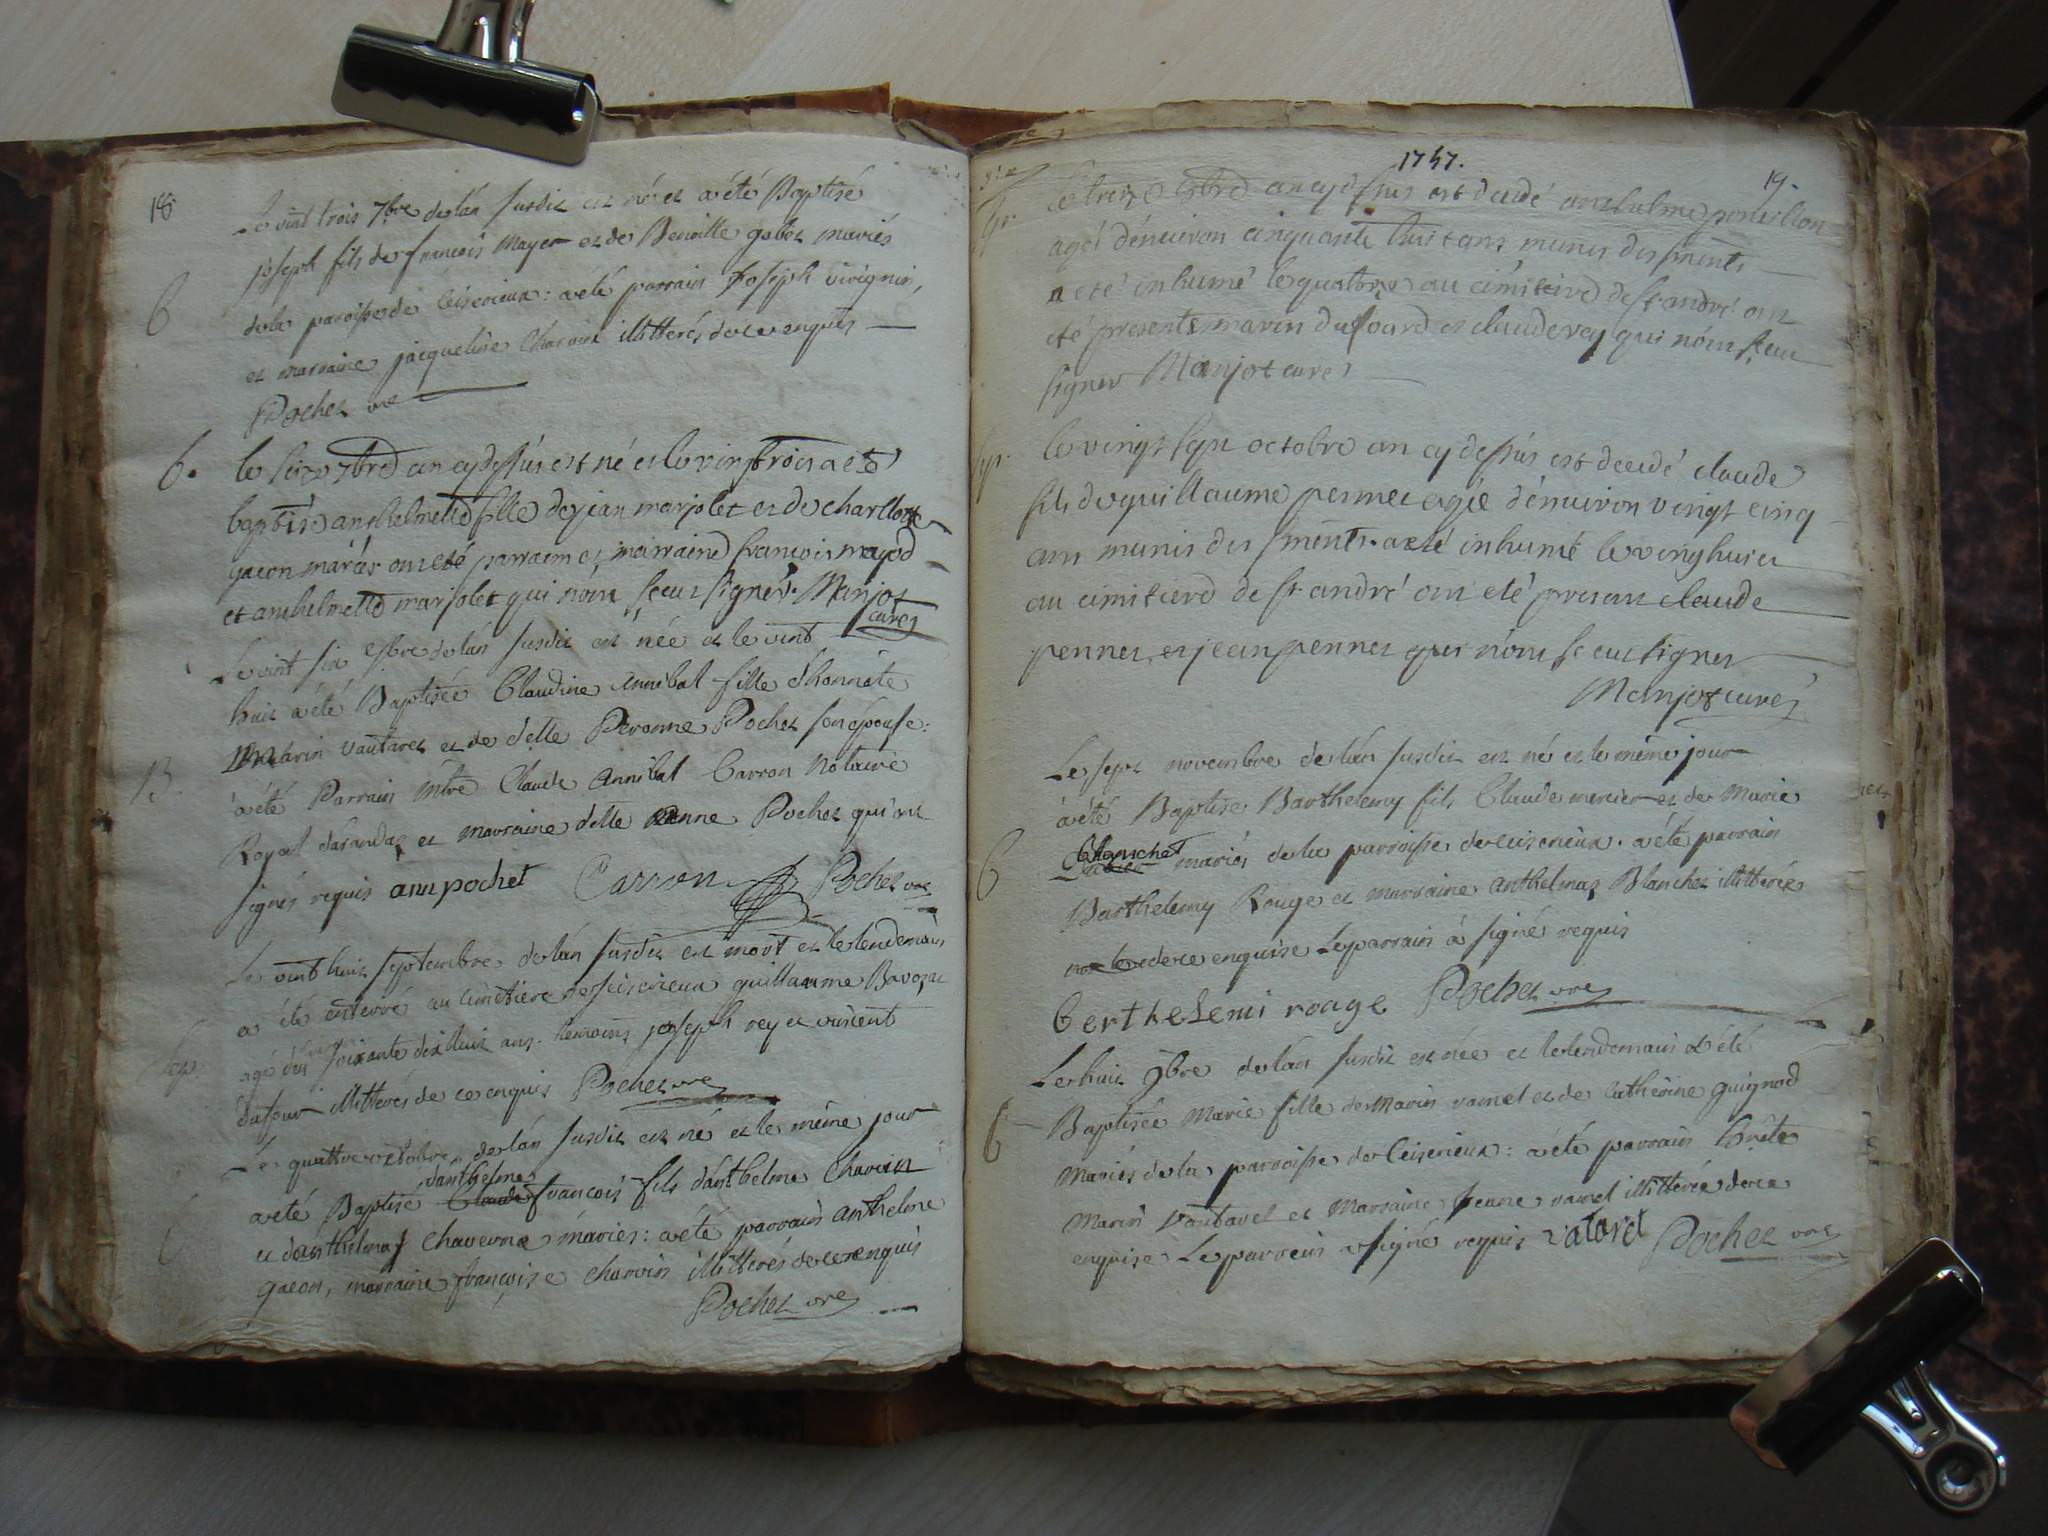 18
Le vint trois 7bre de lán susdit est né et a été Baptisé
joseph fils de francois Mayer et de Benoitte gobet mariés
B
de la paroisse de Ceiserieux : a été parrain Joseph virignin,
et marraine jacqueline Charvin illitterés de ce enquis
Pochet vre
b.
le seize 7bre an cy dessus est né et le vint trois a eté
baptisé anthelmette fille de jean marjolet et de charllotte
gacon mariés ont eté parrain et marraine francois mayod
et anthelmette marjolet qui nónt sceu signér. Marjot
curé
Le vint six 7bre de lán susdit est née et le vint
huit a été Baptisée Claudine Annibal fille d'honnéte
Marin Vautaret et de delle Peronne Pochet son épouse :
B.
a été Parrain Mtre Claude Annibal Carron Notaire
Royal darandas et marraine delle Anne Pochet qui ont
signés requis ann pochet Carron Pochet vre
Le vint huit septembre de lán susdit est mort et le lendemain
a été enterré au cimetiere de Ceiserieux guillaume
Sep.
agé de soixante dix huit ans. temoins joseph rey et vincent
dufour illitterés de ce enquis Pochet vre
Le quattre octobre de lán susdit est né et le méme jour
danthelme
a été Baptisé Claude francois fils danthelme Charvin
et danthelmaz chaverne mariés : a été parrain anthelme
gacon, marraine françoise charvin illitterés de ce enquis
Pochet vre
1747.
19.
le treize 8bre an cy dessus est decedé anthelme ponillon
agé dénuiron cinquante huit ans munis des sments
a eté inhumé le quatorze au cimitierd de st andré ont
eté presents marin dufourd et claude rey qui nónt sceu
signer Marjot curé
Sep.
le vingt sept octobre an cy dessus est decedé claude
fils de guillaume pernnet agée dénuiron vingt cinq
ans munis des sments. a eté inhumé le vinghuit
au cimitierd de st andré ont eté presant claude
pennet et jean pennet qui nónt sceu signer
Marjot curé
Le sept novembre de lán susdit est né et le méme jour
a été Baptise Barthelemy fils Claude mercier et de Marie
Blanchet
B
mariés de la parroisse de Ceiserieux. a été parrain
Barthelemy Rouge et marraine anthelmaz Blanchet illitterée
de ce enquise Le parrain á signé requis
berthelemi roage Pochet vre
Le huit 9bre de lán susdit est née et le lendemain a été
B
Baptisée Marie fille de Marin ramel et de Catherine guignod
Mariés de la parroisse de Ceiserieux : a été parrain hnéte
Marin Vautaret et Marraine Jeanne ramel illitterée de ce
enquise Le parrein a signé requis vataret Pochet vre